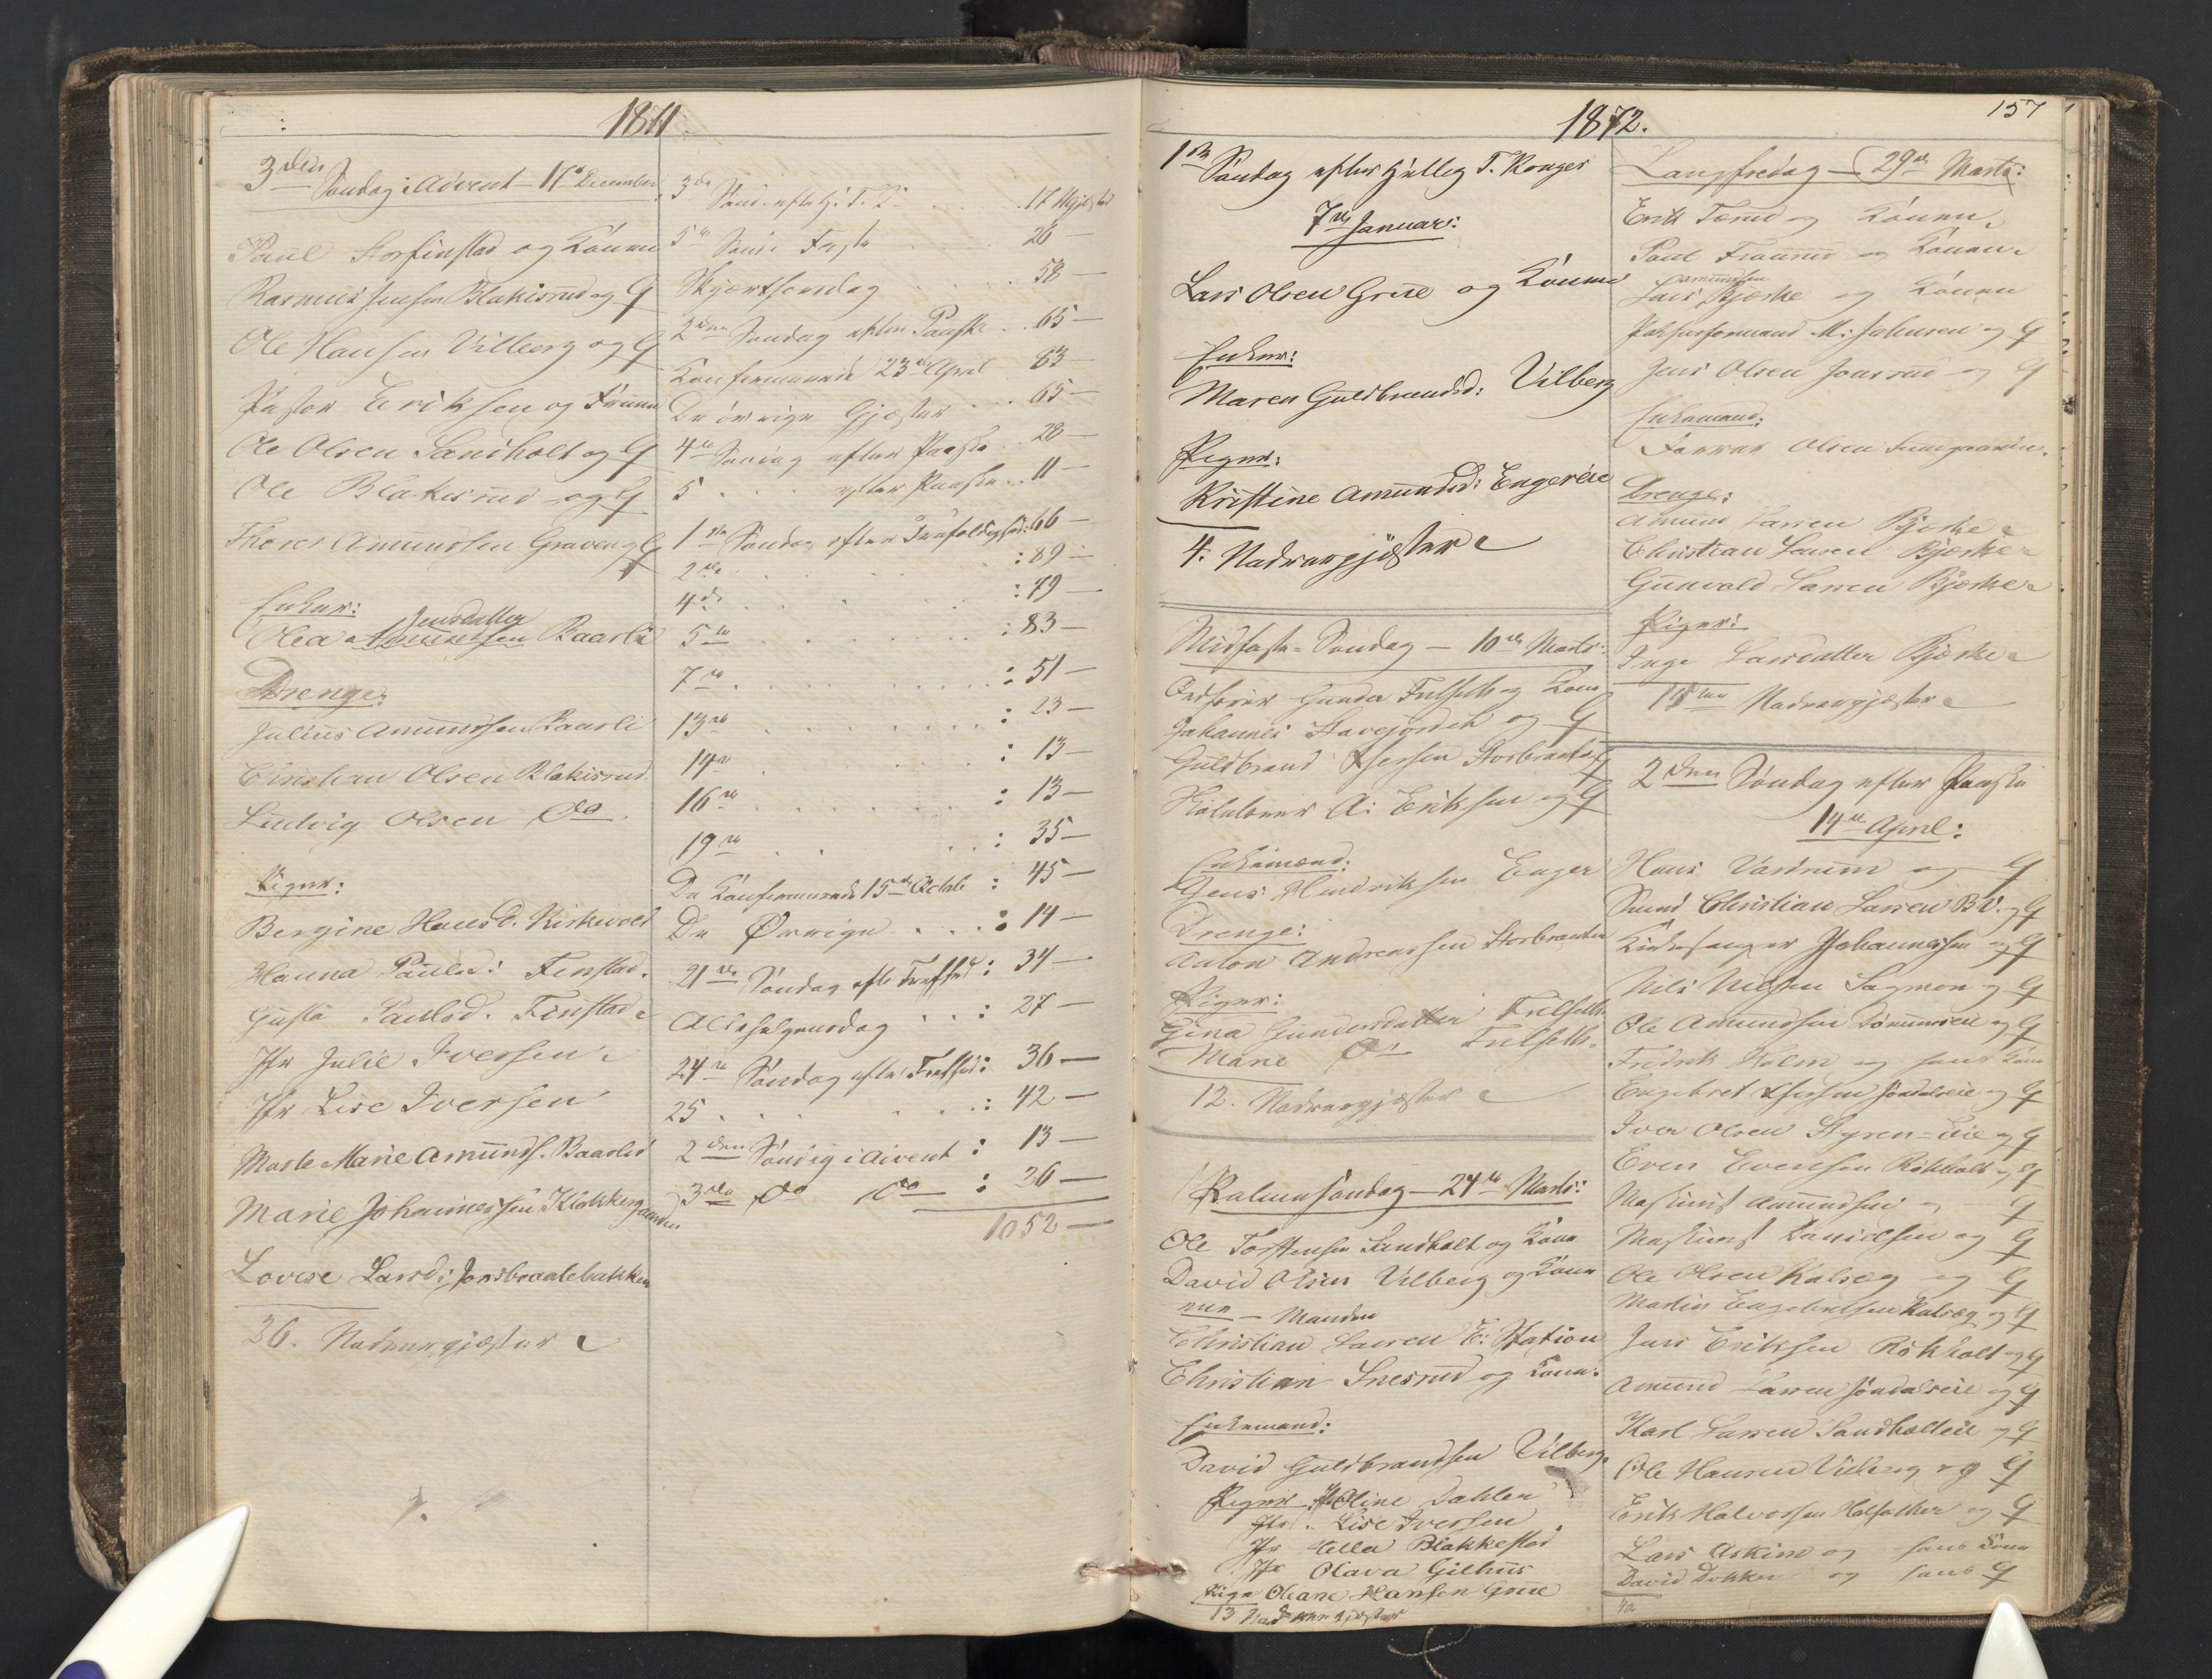 1871
3den Søndag i Advent – 17de December
Paul Korfinstad og Konen
Rasmus Jensen Blakisrud og G
Ole Hansen Vilberg og G
Pastor Eriksen og Fruen
Ole Olsen Sandholt og G
Ole Blakisrud og G
Thores Amundsen Graven og G
Enker:
Jensdatter
Olea Amundsen Baarli
Drenge:
Julius Amundsen Baarli
Christian Olsen Blakisrud
Ludvig Olsen do
Piger:
Bergine Hansd. Kirkevold
Hanna Paulsd: Finstad
Gusta Paulsd. Finstad
Jfr Julie Iversen
Jfr Lise Iversen
Marte Marie Amunds. Baarlid
Marie Johannessen Klokkergaarden
Lovise Larsd: Jonsbraatebakken
36. Nadvergjæster
3de Sønd. efter H. T. K. 17 Gjæster
5te Sønd. Faste 26 –
Skjærthorsdag 58 –
2den Søndag efter Paaske 65 –
Konfirmerede 23de April 83 –
De øvrige Gjæster 65 –
4de Søndag efter Paaske 28 –
5 efter Paaske 11 –
1ste Søndag efter Trefoldighed: 66 –
2den : 89 –
4de : 79 –
5te : 83 –
7de : 51 –
13de : 23 –
14de : 13 –
16de : 13 –
19de : 35 –
De Konfirmerede 15de Octob : 45 –
De Øvrige : 14 –
21de Søndag efter Trefhd : 34 –
Allehelgensdag : 27 –
24de Søndag efter Trefhd : 36 –
25 : 42 –
2den Søndag i Advent : 13 –
3die do do : 36 –
1052 –
1872.
157
1ste Søndag efter Hellig T. Konger
7de Januar:
Lars Olsen Grue og Konen
Enker:
Maren Guldbrandsd: Vilberg
Piger:
Kristine Amundsd: Engereie
4. Nadvergjæster
Midfaste-Søndag – 10de Marts:
Gunder Frilseth og Kone
Johannes Stavejordet og G
Guldbrand Storbraaten
A: Eriksen og G
Enkemænd:
Jens Hendriksen Enger
Drenge:
Anton Andreassen Storbraaten
Piger:
Gina Gundersdatter Frilseth
Marie do Frilseth
12. Nadvergjæster
Palmesøndag – 24de Marts:
Ole Torstensen Sandholt og Kone
David Olsen Vilberg og Kone
– Manden
Christian Larsen E: Station
Christian Snesrud og Kone
Enkemænd:
David Guldbrandsen Vilberg
Piger Jfr Oline Dahlen
Jfr. Lise Iversen
Jfr Hella Blakkestad
Jfr Olava Gilhus
Pige Oleane Hansen Grue
13 Nadvergjæster
Langfredag – 29de Marts:
Erik Tærud og Konen
Paul Fraunes og Konen
Amundsen
Lars Bjerke og Konen
M: Johnsen og G
Jens Olsen Jonsrud og G
Enkemænd:
Olsen
Drenge:
Amund Larsen Bjerke
Christian Larsen Bjerke
Gunvald Larsen Bjerke
Piger:
Inge Larsdatter Bjerke
Nadvergjæster
2den Søndag efter Paaske
14de April:
Hans Vardrum og G
Smed Christian Larsen B.V. og G
Kirkesanger Johannessen og G
Nils Nilsen Sagmon og G
Ole Amundsen og G
Fredrik Holm og hans Kone
Engebret og G
Iver Olsen Styren-Eie og G
Even Evensen Rökholt og G
Maskinist Amundsen og G
Maskinist Danielsen og G
Ole Olsen Kalseg og G
Martin Engebretsen Kalseg og G
Jens Eriksen Rökholt og G
Amund Larsen og G
Karl Larsen Sandholteie og G
Ole Hansen Vilberg og G
Erik Halvorsen og G
Lars Askim og hans Kone
David Dokken og hans G